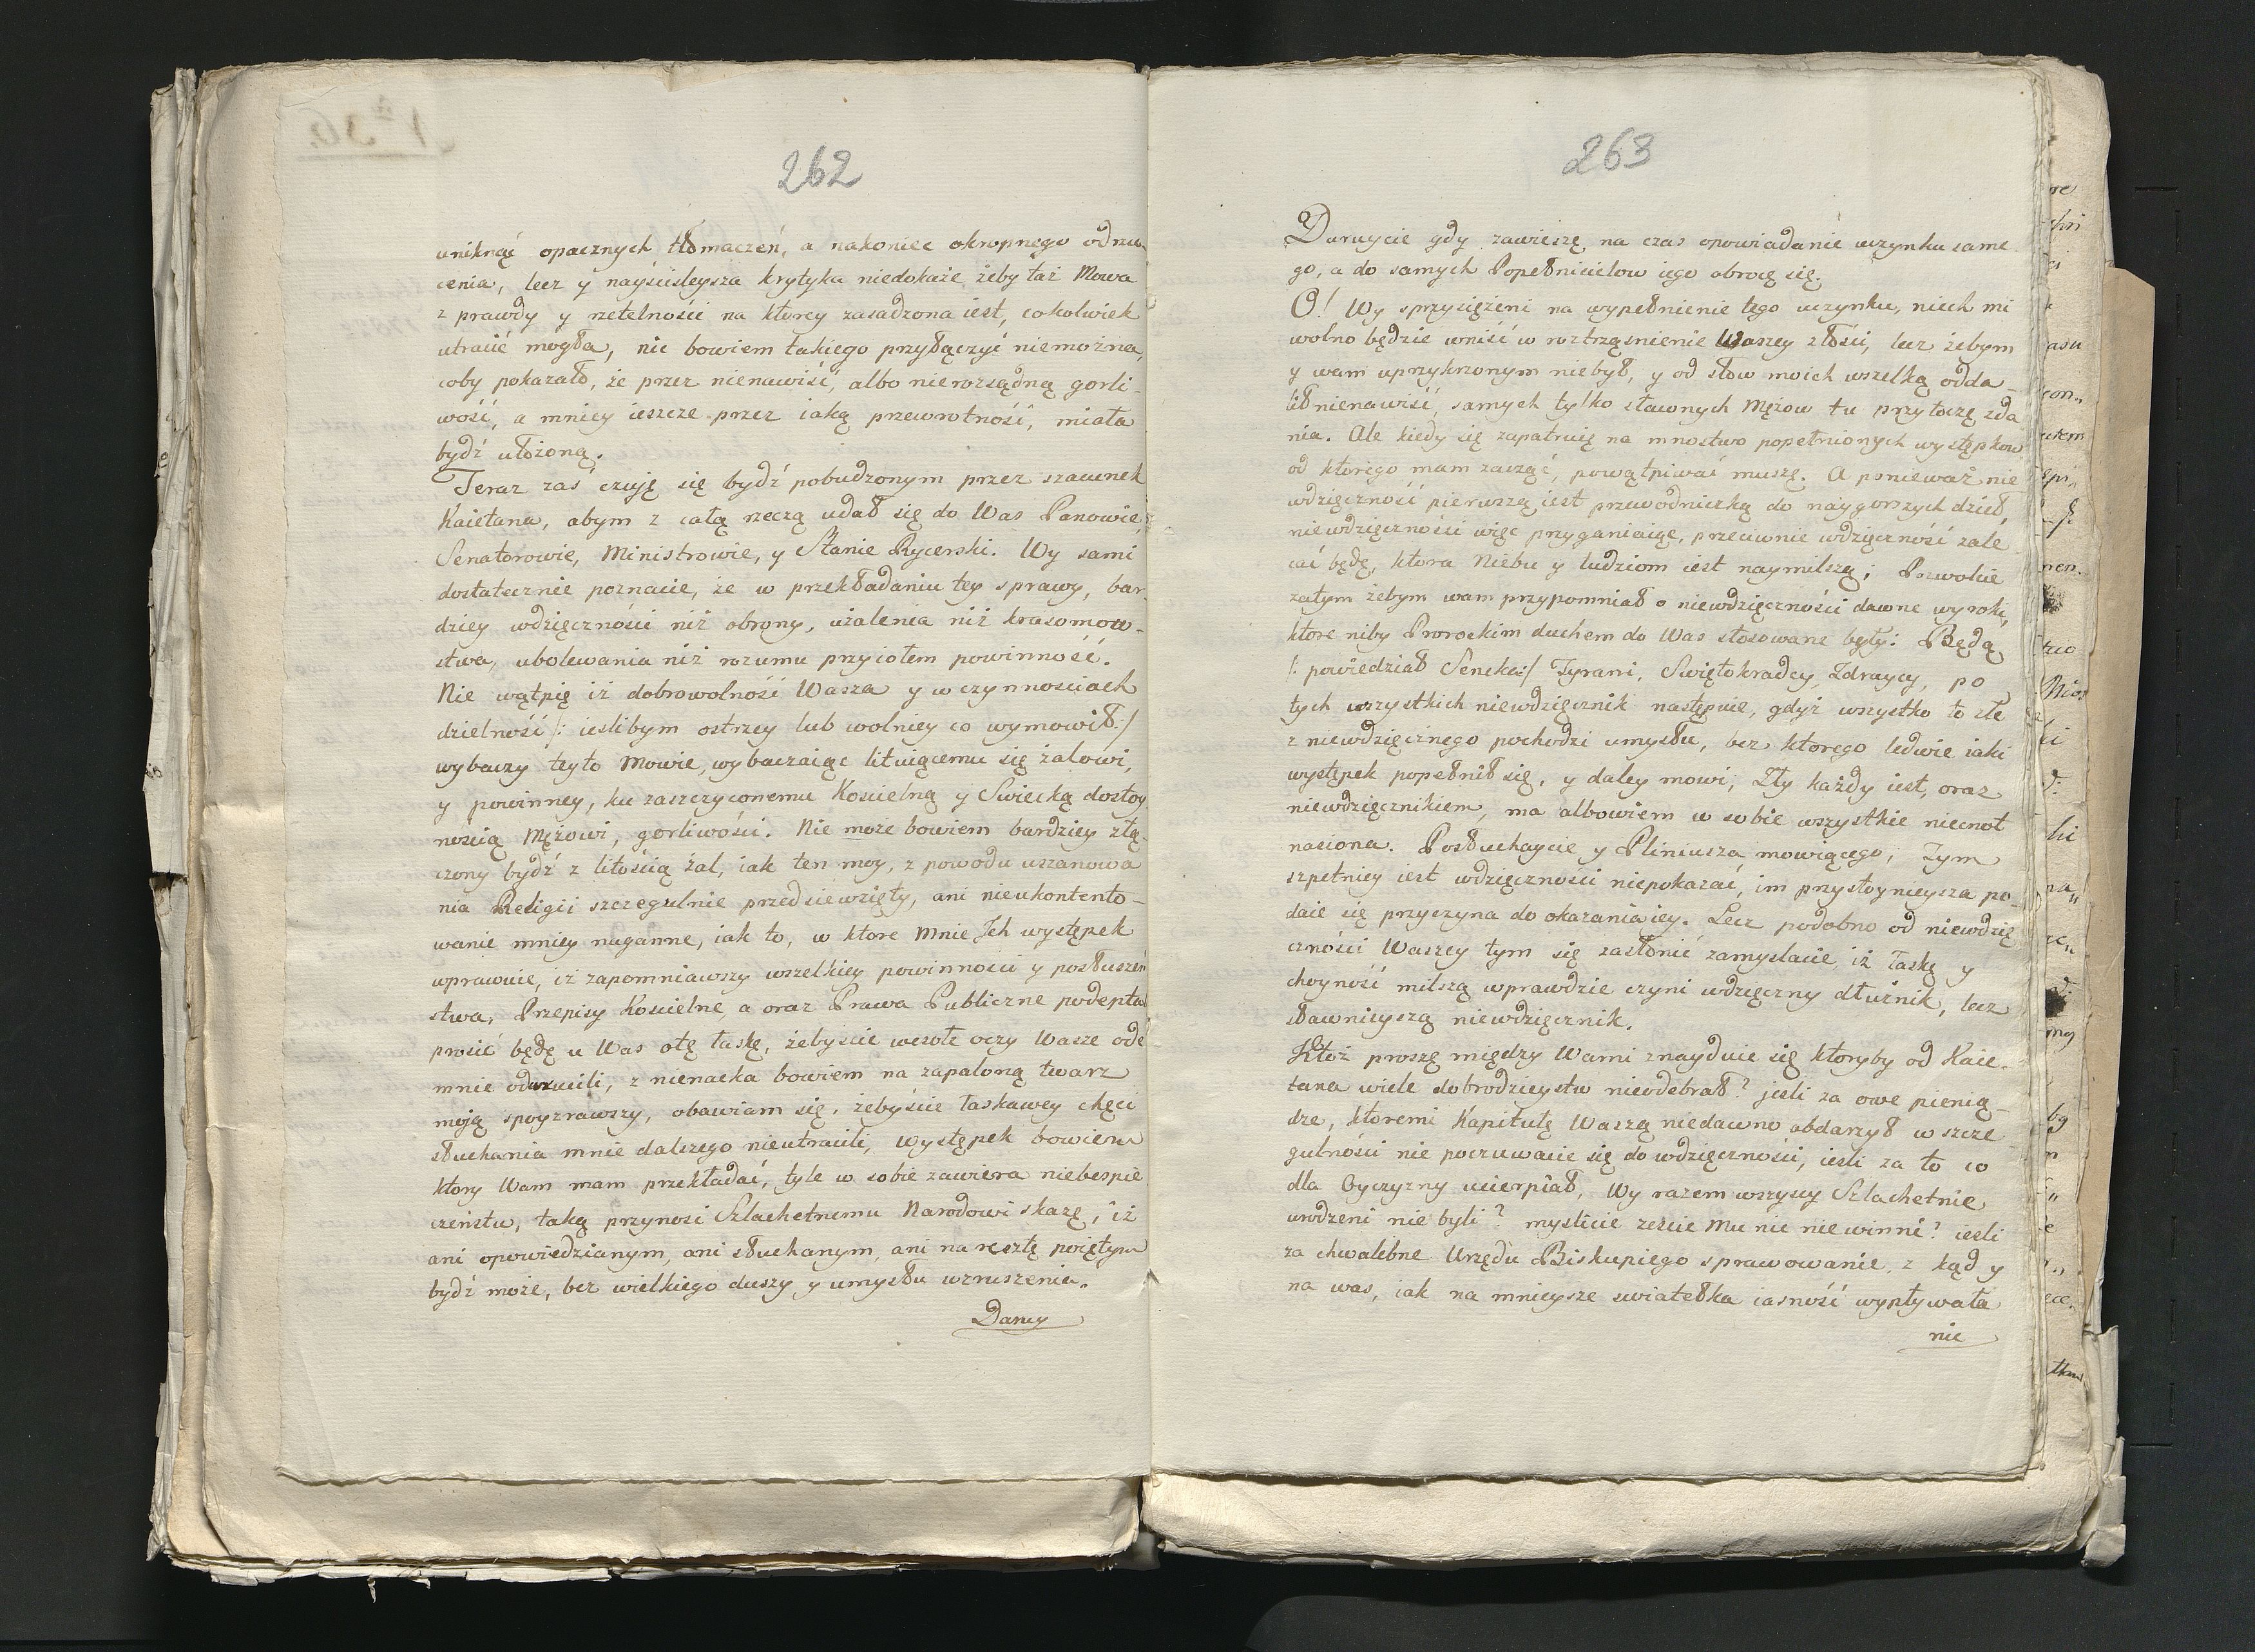 262
uniknąć opacznych tłomaczeń, a nakoniec okropnego odrzu
cenia, lecz y nayściśleysza krytyka niedokaże żeby taż Mowa
z prawdy y rzetelności na ktorey zasadzona iest, cokolwiek
utracić mogła, nic bowiem takiego przyłączyć niemożna,
coby pokazało, że przez nienawiść, albo nierozsądną gorli-
wość, a mniey ieszcze przez iaką przewrotność, miała
bydź ułożoną.
Teraz zaś czuię się bydź pobudzonym przez szacunek
Kaietana, abym z całą rzeczą udał się do Was Panowie,
Senatorowie, Ministrowie, y Stanie Rycerski. Wy sami
dostatecznie poznacie, że w przekładaniu tey sprawy, bar-
dziey wdzięczności niż obrony, użalenia niż krasomow-
stwa, ubolewania niż rozumu przyiołem powinność.
Nie wątpię iż dobrowolność Wasza y w czynnościach
dzielność /: ieslibym ostrzey lub wolniey co wymowił :/
wybaczy teyto Mowie, wybaczaiąc lituiącemu się żalowi,
y powinney, ku zaszczyconemu Kościelną y Swiecką dostoy
nością Mężowi, gorliwości. Nie może bowiem bardziey złą
czony bydź z litością żal, iak ten moy, z powodu uszanowa
nia Religii szczegulnie przedsiewzięty, ani nieukontento-
wanie mniey naganne, iak to, w ktore Mnie Ich występek
wprawuie, iż zapomniawszy wszelkiey powinności y posłuszeń
stwa, Przepisy Kościelne a oraz Prawa Publiczne podeptal
prosić będę u Was otę łaskę, żebyscie wesołe oczy Wasze ode
mnie odwrucili, z nienacka bowiem na zapaloną twarz
moją spoyzrawszy, obawiam się, żebyście łaskawey chęci
słuchania mnie dalszego nieutracili, występek bowiem
ktory Wam mam przekładać, tyle w sobie zawiera niebespie
czeństw, taką przynosi Szlachetnemu Narodowi skazę, iż
ani opowiedzianym, ani słuchanym, ani na resztę poiętym
bydź może, bez wielkiego duszy y umysłu wzruszenia.
Daruy
263
Daruycie gdy zawieszę na czas opowiadanie uczynku same
go, a do samych Popełnicielow iego obrocę się.
O! Wy sprzysiężeni na wypełnienie tego uczynku, niech mi
wolno będzie wniść w roztrząsnienie Waszey złości, lecz żebym
y wam uprzykrzonym niebył, y od słow moich wszelką odda-
lił nienawiść, samych tylko sławnych Mężow tu przytoczę zda
nia. Ale kiedy się zapatruię na mnostwo popełnionych występkow
od ktorego mam zacząć, powątpiwać muszę. A ponieważ nie
wdzięczność pierwszą iest przewodniczką do naygorszych dzieł,
niewdzięczności więc przyganiaiąc, przeciwnie wdzięczność zale
cać będę, ktora Niebu y ludziom iest naymilszą; Pozwolcie
zatym żebym wam przypomniał o niewdzięczności dawne wyroki,
ktore niby Prorockim duchem do Was stosowane były: Będą
/: powiedział Seneka :/ Tyrani, Swiętokradcy, Zdraycy, po
tych wszystkich niewdzięcznik następuie, gdyż wszystko to złe
z niewdzięcznego pochodzi umysłu, bez ktorego ledwie iaki
występek popełnił się, y daley mowi; Zły każdy iest, oraz
niewdzięcznikiem, ma albowiem w sobie wszystkie niecnot
nasiona. Posłuchaycie y Pliniusza mowiącego; Tym
szpetniey iest wdzięczności niepokazać, im przystoynieysza po-
daie się przyczyna do okazania iey. Lecz podobno od niewdzię
czności Waszey tym się zasłonić zamyslacie, iż łaskę y
choyność milszą wprawdzie czyni wdzięczny dłużnik, lecz
sławnieyszą niewdzięcznik.
Ktoż proszę między Wami znayduie się ktoryby od Kaie-
tana wiele dobrodzieystw nieodebrał? jeśli za owe pienią-
dze, ktoremi Kapitułę Waszą niedawno obdarzył w szcze
gulności nie poczuwacie się do wdzięczności, iesli za to co
dla Oyczyzny ucierpiał, Wy razem wszyscy Szlachetnie
urodzeni nie byli? myslicie zeście Mu nic niewinni? iesli
za chwalebne Urzędu Biskupiego sprawowanie, z kąd y
na was, iak na mnieysze swiatełka iasność wypływała
nie